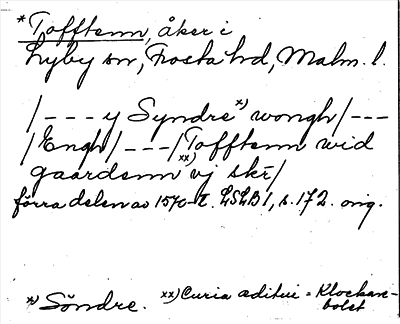 * Tofftenn, åker i
Lyby sn, Frosta hd, Malm. l.
/ - - - y Syndre *) wongh / - - -
/ Engh / - - - / xx) Tofftenn wid
gaardenn vj skr̄ /
förra delen av 1570-t. LSLB 1, s. 172. orig.
*) Söndre. xx) Curia æditui = Klockare-
bolet